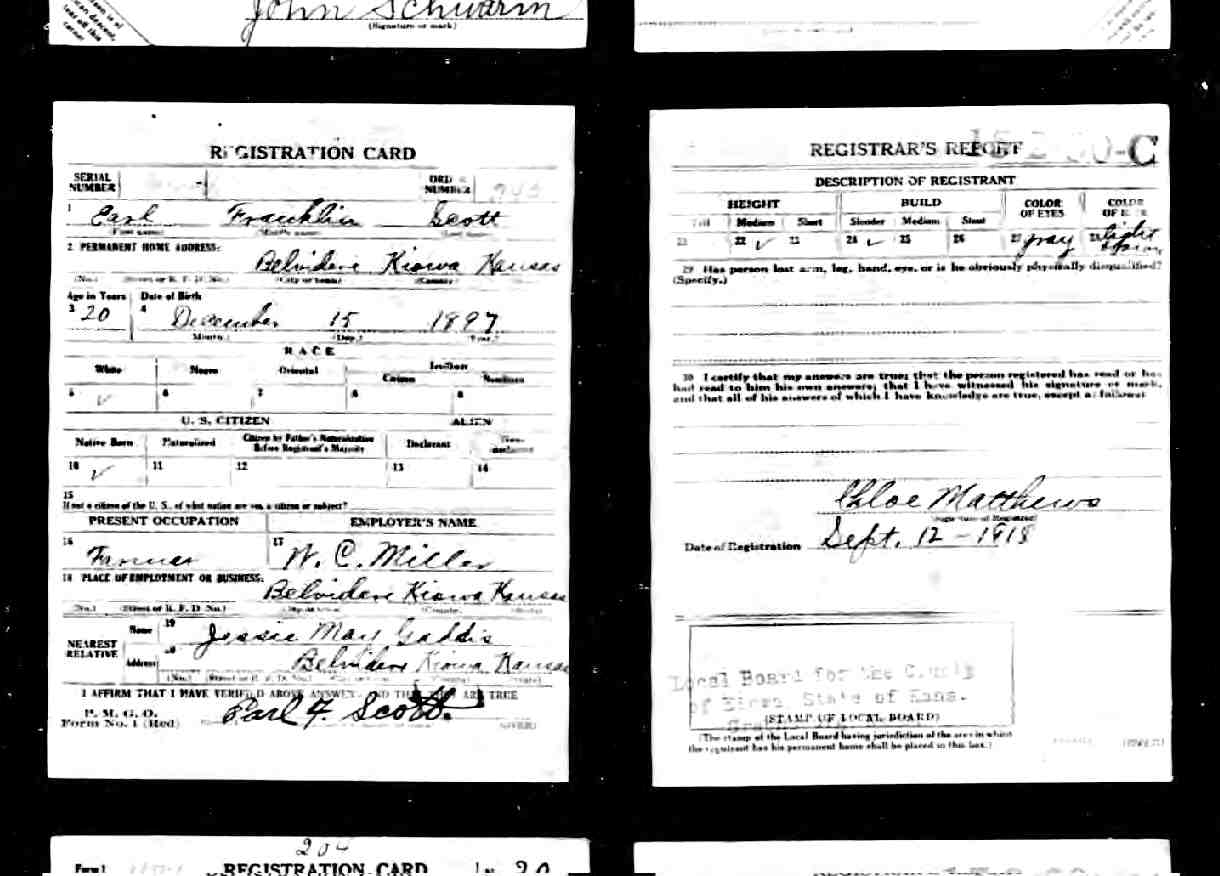 John Schwarm
(Signature or mark)
REGISTRATION CARD
SERIAL NUMBER
ORDER NUMBER
1 Earl Franklin Scott
(First name) (Middle name) (Last name)
2 PERMANENT HOME ADDRESS:
Belvidere Kiowa Kansas
(No.) (Street or R. F. D. No.) (City or town) (County)
Age in Years Date of Birth
3 20 4 December 15 1897
(Month.) (Day.) (Year.)
RACE
White Negro Oriental Indian
Citizen Noncitizen
5 ✓ 6 7 8 9
U. S. CITIZEN ALIEN
Native Born Naturalized Citizen by Father's Naturalization Before Registrant's Majority Declarant Non-declarant
10 ✓ 11 12 13 14
15
If not a citizen of the U. S., of what nation are you a citizen or subject?
PRESENT OCCUPATION EMPLOYER'S NAME
16 Farmer 17 W. C. Miller
18 PLACE OF EMPLOYMENT OR BUSINESS:
Belvidere Kiowa Kansas
(No.) (Street or R. F. D. No.) (County)
NEAREST RELATIVE
Name 19 Jessie May Gaddis
Address 20 Belvidere Kiowa Kansas
(No.) (Street or R. F. D. No.)
I AFFIRM THAT I HAVE VERIFIED ABOVE ANSWERS AND THAT THEY ARE TRUE
P. M. G. O.
Form No. 1 (Red) Earl F. Scott. (OVER)
REGISTRAR'S REPORT
C
DESCRIPTION OF REGISTRANT
HEIGHT BUILD COLOR OF EYES COLOR OF HAIR
Tall Medium Short Slender Medium Stout
21 22 ✓ 23 24 ✓ 25 26 27 gray 28 light brown
29 Has person lost arm, leg, hand, eye, or is he obviously physically disqualified?
(Specify.)
30 I certify that my answers are true; that the person registered has read or has
had read to him his own answers; that I have witnessed his signature or mark,
and that all of his answers of which I have knowledge are true, except as follows:
Chloe Matthews
(Signature of Registrar)
Date of Registration Sept. 12 - 1918
Local Board for the County
of Kiowa, State of Kans.
(STAMP OF LOCAL BOARD)
(The stamp of the Local Board having jurisdiction of the area in which
the registrant has his permanent home shall be placed in this box.)
(OVER)
204
Form 1 REGISTRATION CARD No. 20